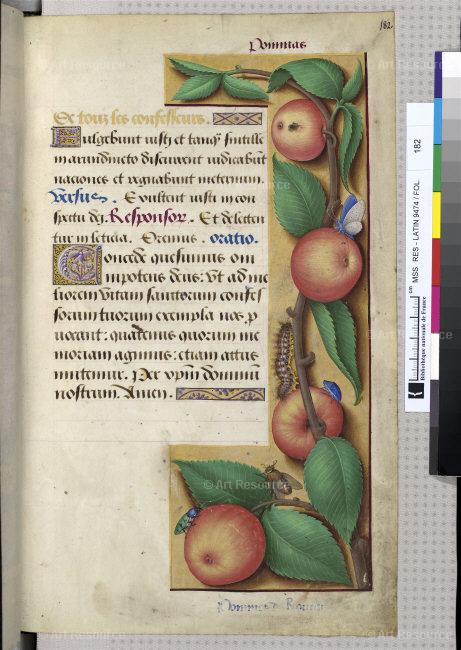 182.
Pommes
De touz les confesseurs.
Fulgebunt iusti et tanq̄ sintille
in arundineto discurrent iudicabūt
naciones et regnabunt ineternum.
Versus. Exultent iusti in con
spectu dei. Responsor. Et delecten
tur in leticia. Oremus. oratio.
Concede quesumus om
nipotens deus: vt ad me
liorem vitam sanctorum confes
sorum tuorum exempla nos p
uocant: quatenus quorum me
moriam agimus: etiam actus
imitemur. Per xpm dominum
nostrum. Amen.
Pommes de
182
MSS RES - LATIN 9474 / FOL
cm
Bibliothèque nationale de France
© Art Resource